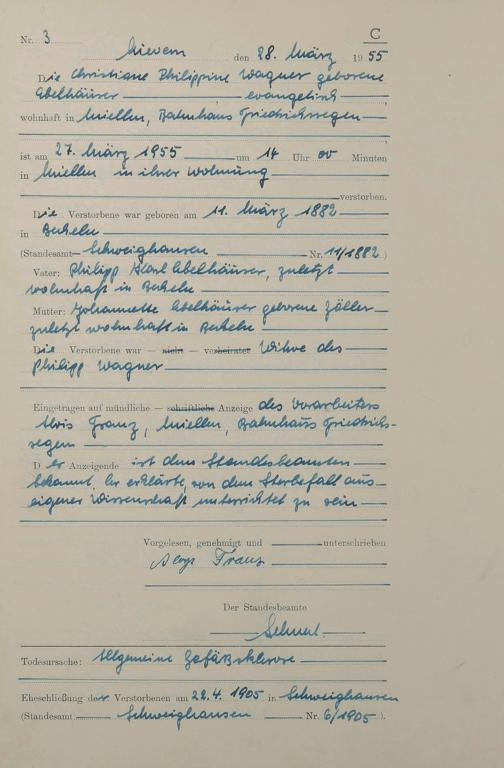 C
Nr. 3
Nievern den 28. März 1955
Die Christiane Philippine Wagner geborene
Ebelhäuser evangelisch
wohnhaft in Miellen, Bahnhaus Friedrichssegen
ist am 27. März 1955 um 14 Uhr 00 Minuten
in Miellen in ihrer Wohnung
verstorben.
Die Verstorbene war geboren am 11. März 1882
in Berheln
(Standesamt Schweighausen Nr. 11/1882)
Vater: Philipp Karl Ebelhäuser, zuletzt
wohnhaft in Berheln
Mutter: Johannette Ebelhäuser geborene Zöller
zuletzt wohnhaft in Berheln
Die Verstorbene war — nicht — verheiratet Witwe des
Philipp Wagner
Eingetragen auf mündliche — schriftliche Anzeige des Vorarbeiters
Alois Franz, Miellen, Bahnhaus Friedrichs-
segen
Der Anzeigende ist dem Standesbeamten
bekannt. Er erklärte, von dem Sterbefall aus
eigener Wissenschaft unterrichtet zu sein
Vorgelesen, genehmigt und unterschrieben
Aloys Franz
Der Standesbeamte
Todesursache: Allgemeine Gefäßsklerose
Eheschließung der Verstorbenen am 22.4.1905 in Schweighausen
(Standesamt Schweighausen Nr. 6/1905)